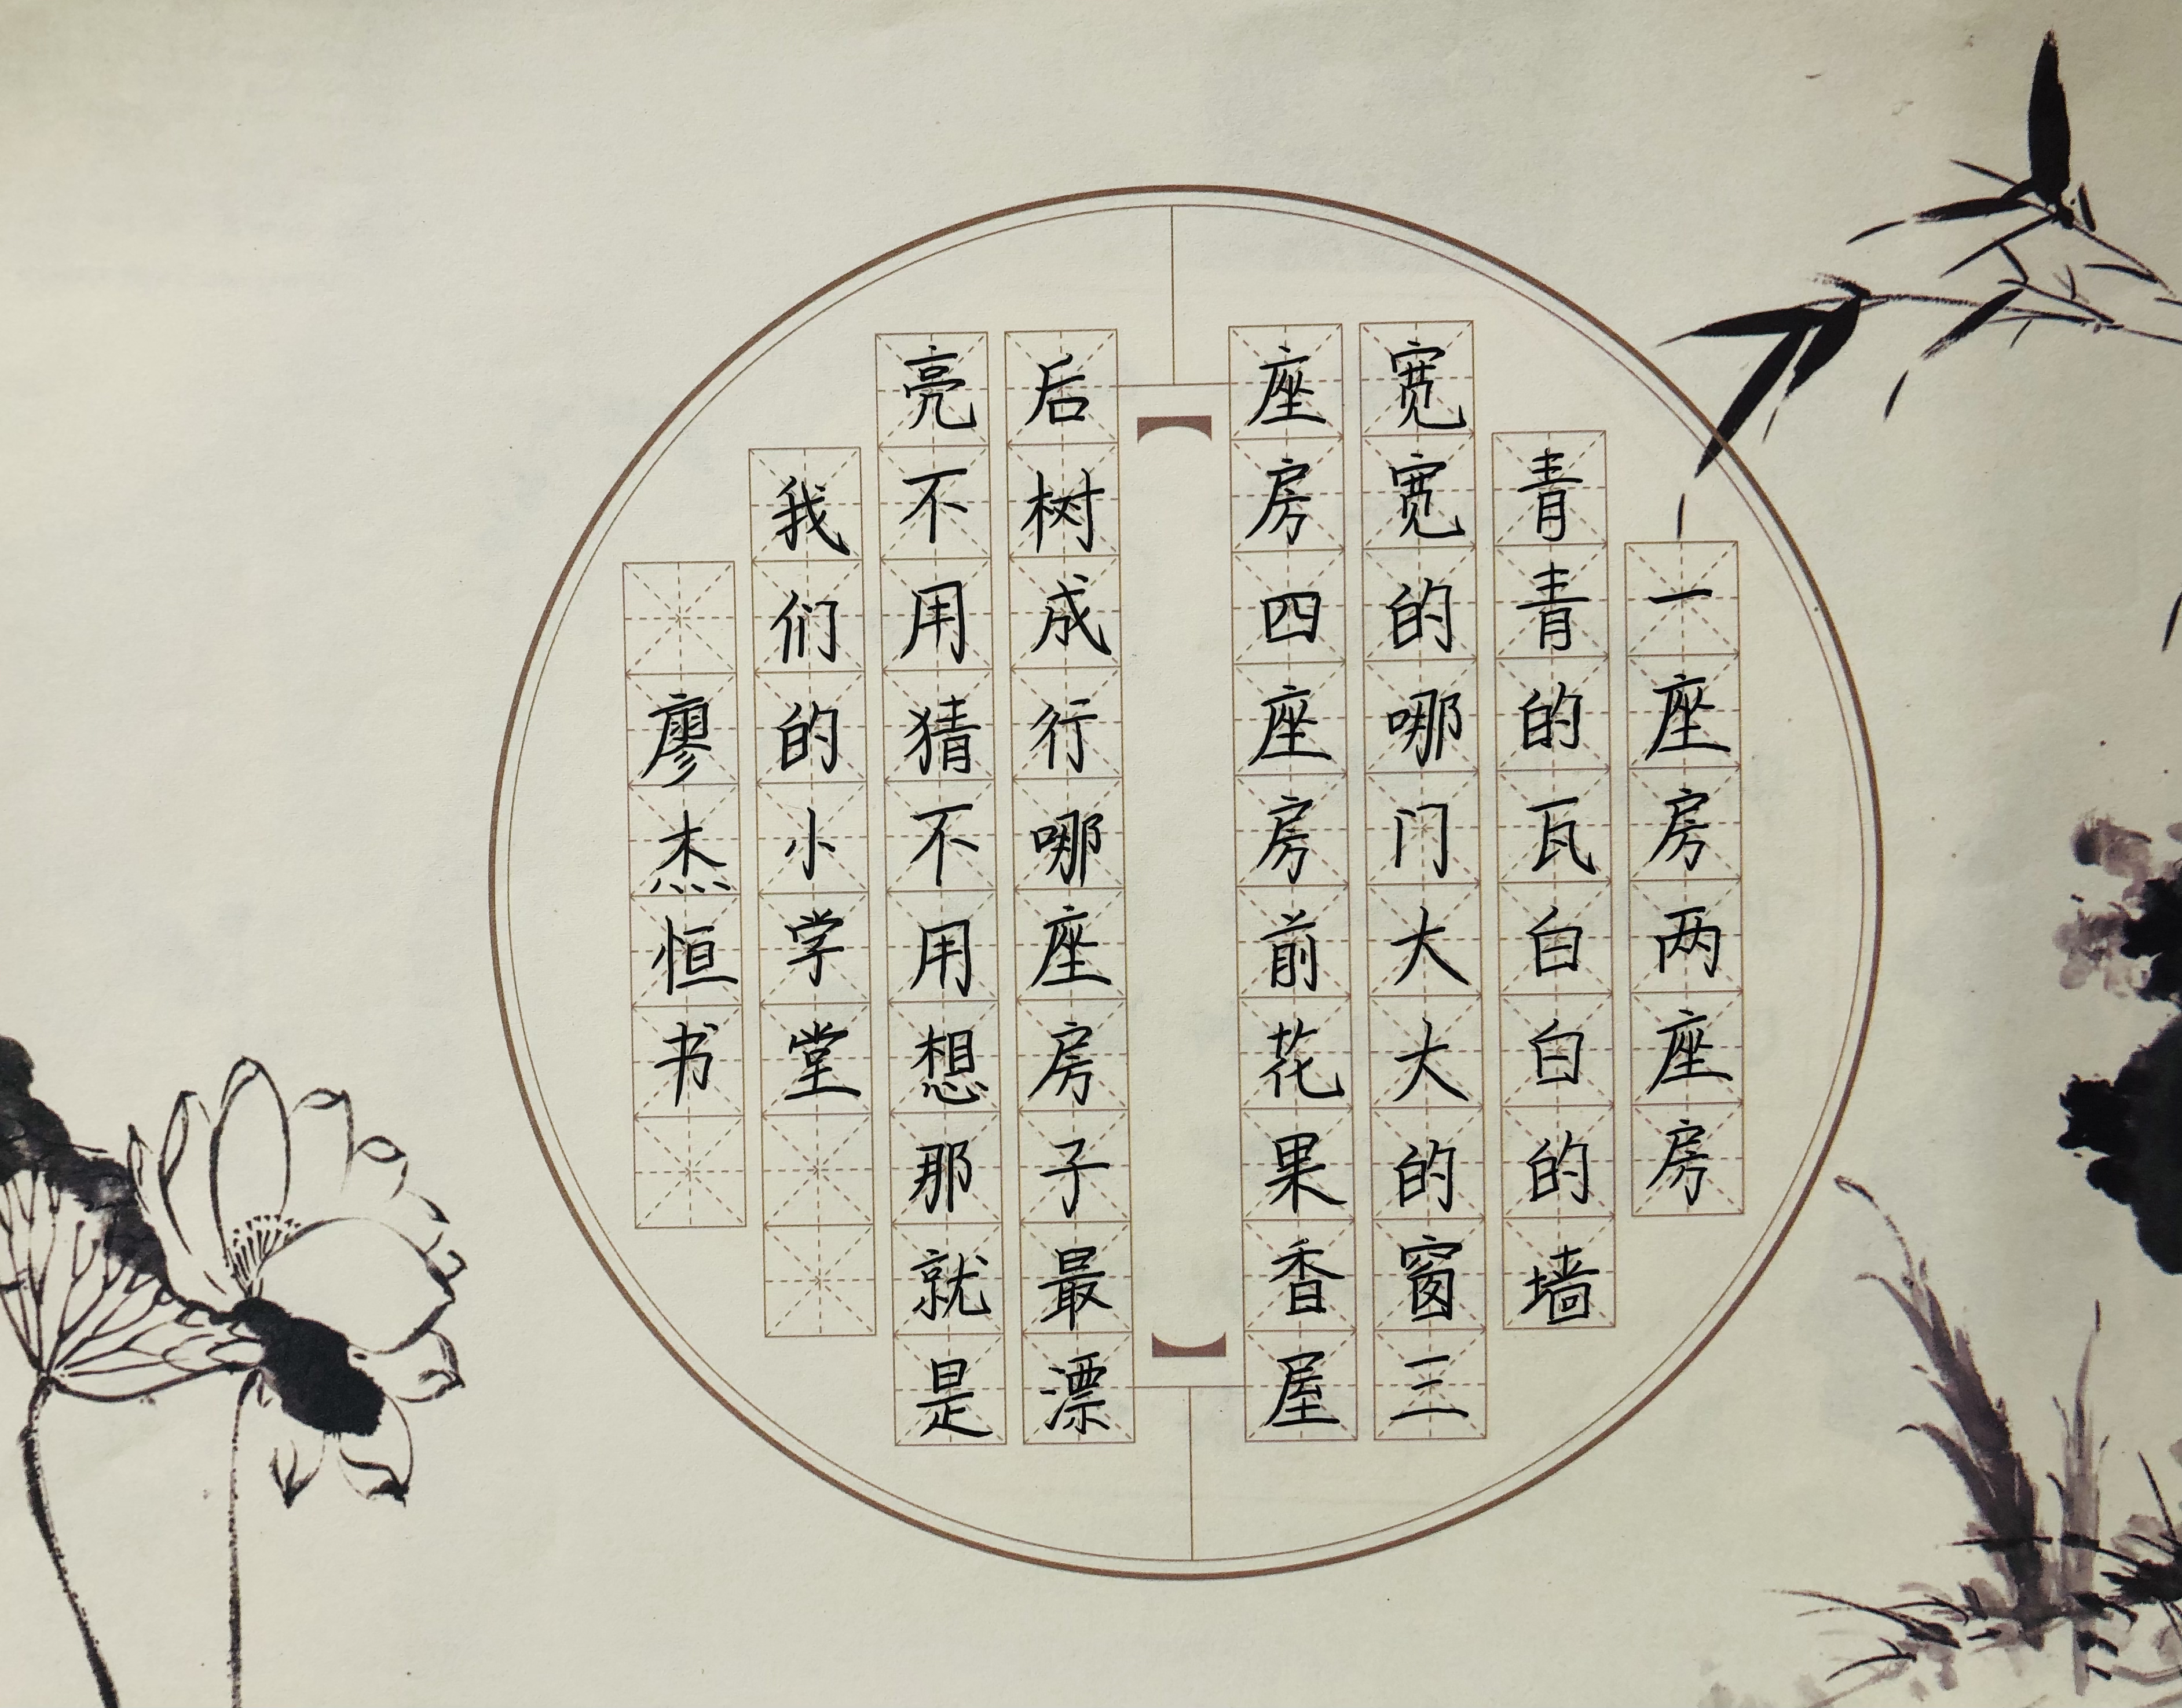 一座房两座房
青青的瓦白白的墙
宽宽的哪门大大的窗三
座房四座房前花果香屋
后树成行哪座房子最漂
亮不用猜不用想那就是
我们的小学堂
廖杰恒书